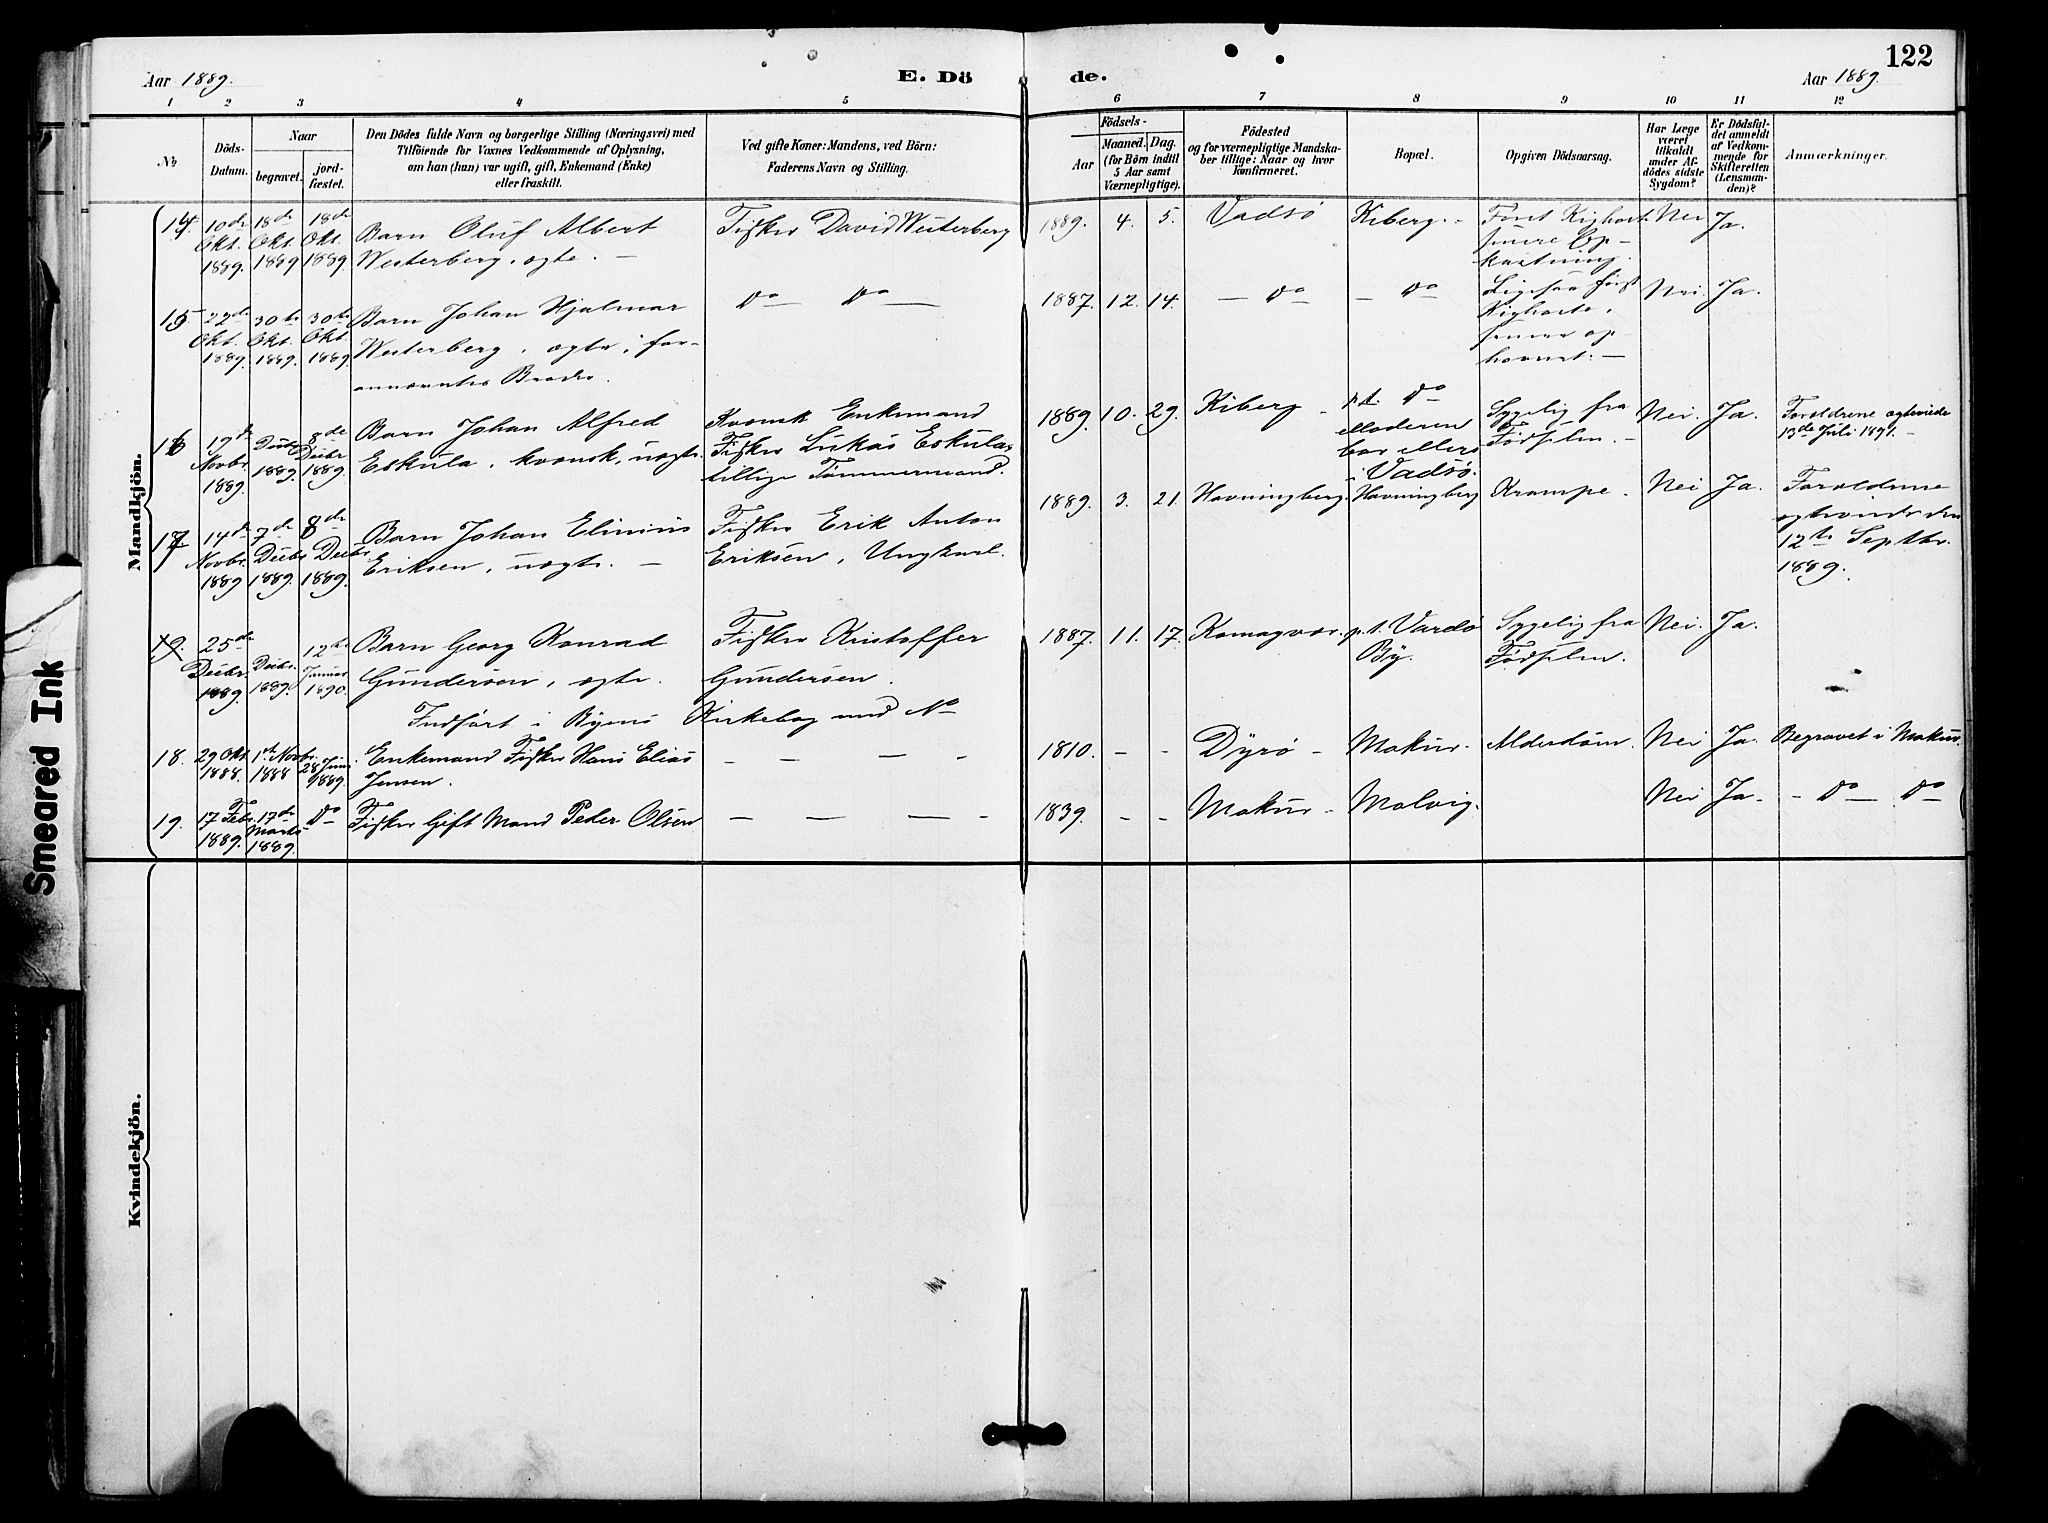 122
Aar 1889.
E. Dö
de.
Aar 1889.
1 2 3 4 5 6 7 8 9 10 11 12
No
Döds-
Datum.
Naar
begravet.
jord-
fæstet.
Den Dödes fulde Navn og borgerlige Stilling (Næringsvei) med
Tilföiende for Voxnes Vedkommende af Oplysning,
om han (hun) var ugift, gift, Enkemand (Enke)
eller fraskilt.
Ved gifte Koner: Mandens, ved Börn:
Faderens Navn og Stilling.
Födsels-
Aar
Maaned. Dag.
(for Börn indtil
5 Aar samt
Værnepligtige).
Födested
og for værnepligtige Mandska-
ber tillige: Naar og hvor
konfirmeret.
Bopæl.
Opgiven Dödsaarsag.
Har Læge
været
tilkaldt
under Af-
dödes sidste
Sygdom?
Er Dödsfal-
det anmeldt
af Vedkom-
mende for
Skifteretten
(Lensman-
den)?
Anmærkninger.
Mandkjön.
14. 10de Okt. 1889. 18de Okt. 1889 18de Okt. 1889. Barn Oluf Albert
Westerberg, ægte. —
Fisker David Westerberg
1889. 4. 5. Vadsö Kiberg. - Först Kighoste
senere Op-
kastning.
Nei Ja.
15. 22de Okt. 1889. 30te Okt. 1889. 30te Okt. 1889. Barn Johan Hjalmar
Westerberg, ægte, for-
annævntes Broder.
Do Do
1887. 12. 14. — Do — Do Ligesaa först
Kighoste,
senere op-
hovnet. —
Nei. Ja.
16 17de Novbr. 1889. Decbr. 1889. 8de Decbr. 1889. Barn Johan Alfred
Eskula, kvensk, uægte.
Kvensk Enkemand
Fisker Lukas Eskula,
tillige Tømmermand.
1889. 10. 29. Kiberg - p.t. Do
Moderen
bor ellers
i Vadsö.
Sygelig fra
Födselen. —
Nei. Ja. Forældrene ægteviede
13de Juli 1891. —
17. 14de Novbr. 1889 7de Decbr. 1889. 8de Decbr. 1889. Barn Johan Elinius
Eriksen, uægte. —
Fisker Erik Anton
Eriksen, Ungkarl.
1889. 3. 21. Havningberg. Havningberg Krampe. Nei Ja. Forældrene
ægteviede den
12te Septbr.
1889.
25de Decbr. 1889. Decbr. 1889. 12te Januar 1890. Barn Georg Konrad
Gundersen, ægte.
Fisker Kristoffer
Gundersen.
1887. 11. 17. Komagvær. p.t. Vardö
By.
Sygelig fra
Födselen.
Nei. Ja.
Indfört i Byens Kirkebog med No
18. 29 Okt. 1888. 1st Novbr. 1888 28 Juni 1889. Enkemand Fisker Hans Elias
Jensen.
— — — -
1810. - - Dyrö - Makur. Alderdom. Nei Ja. Begravet i Makur.
19. 17 Febr. 1889. 17de Marts 1889. Do Fisker Gift Mand Peder Olsen
— — — -
1839. - - Makur - Molvig. Nei Ja - - Do — Do
Kvindekjön.
Smeared Ink